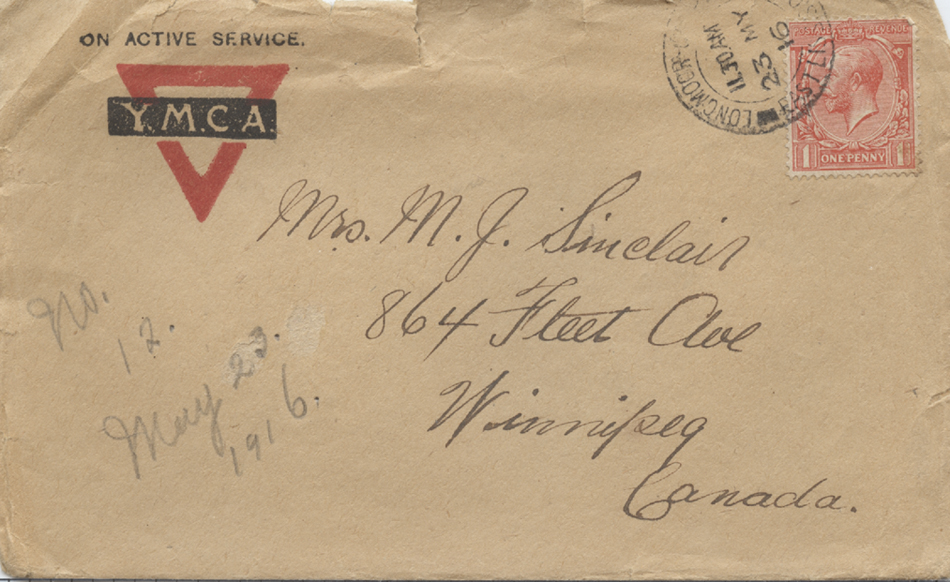 ON ACTIVE SERVICE.
Y.M.C.A.
LONGMOOR
11.30 AM
23 MY
16
POSTAGE REVENUE
1 ONE PENNY 1
Mrs. M. J. Sinclair
864 Fleet Ave
Winnipeg
Canada.
No.
12.
May 23.
1916.